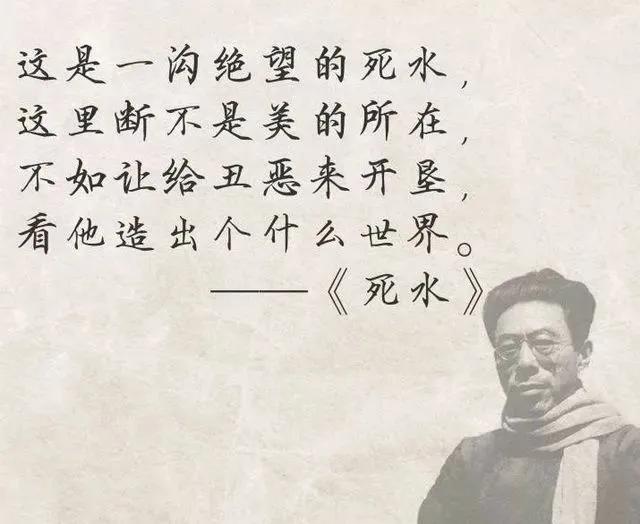 这是一沟绝望的死水，
这里断不是美的所在，
不如让给丑恶来开垦，
看他造出个什么世界。
——《死水》